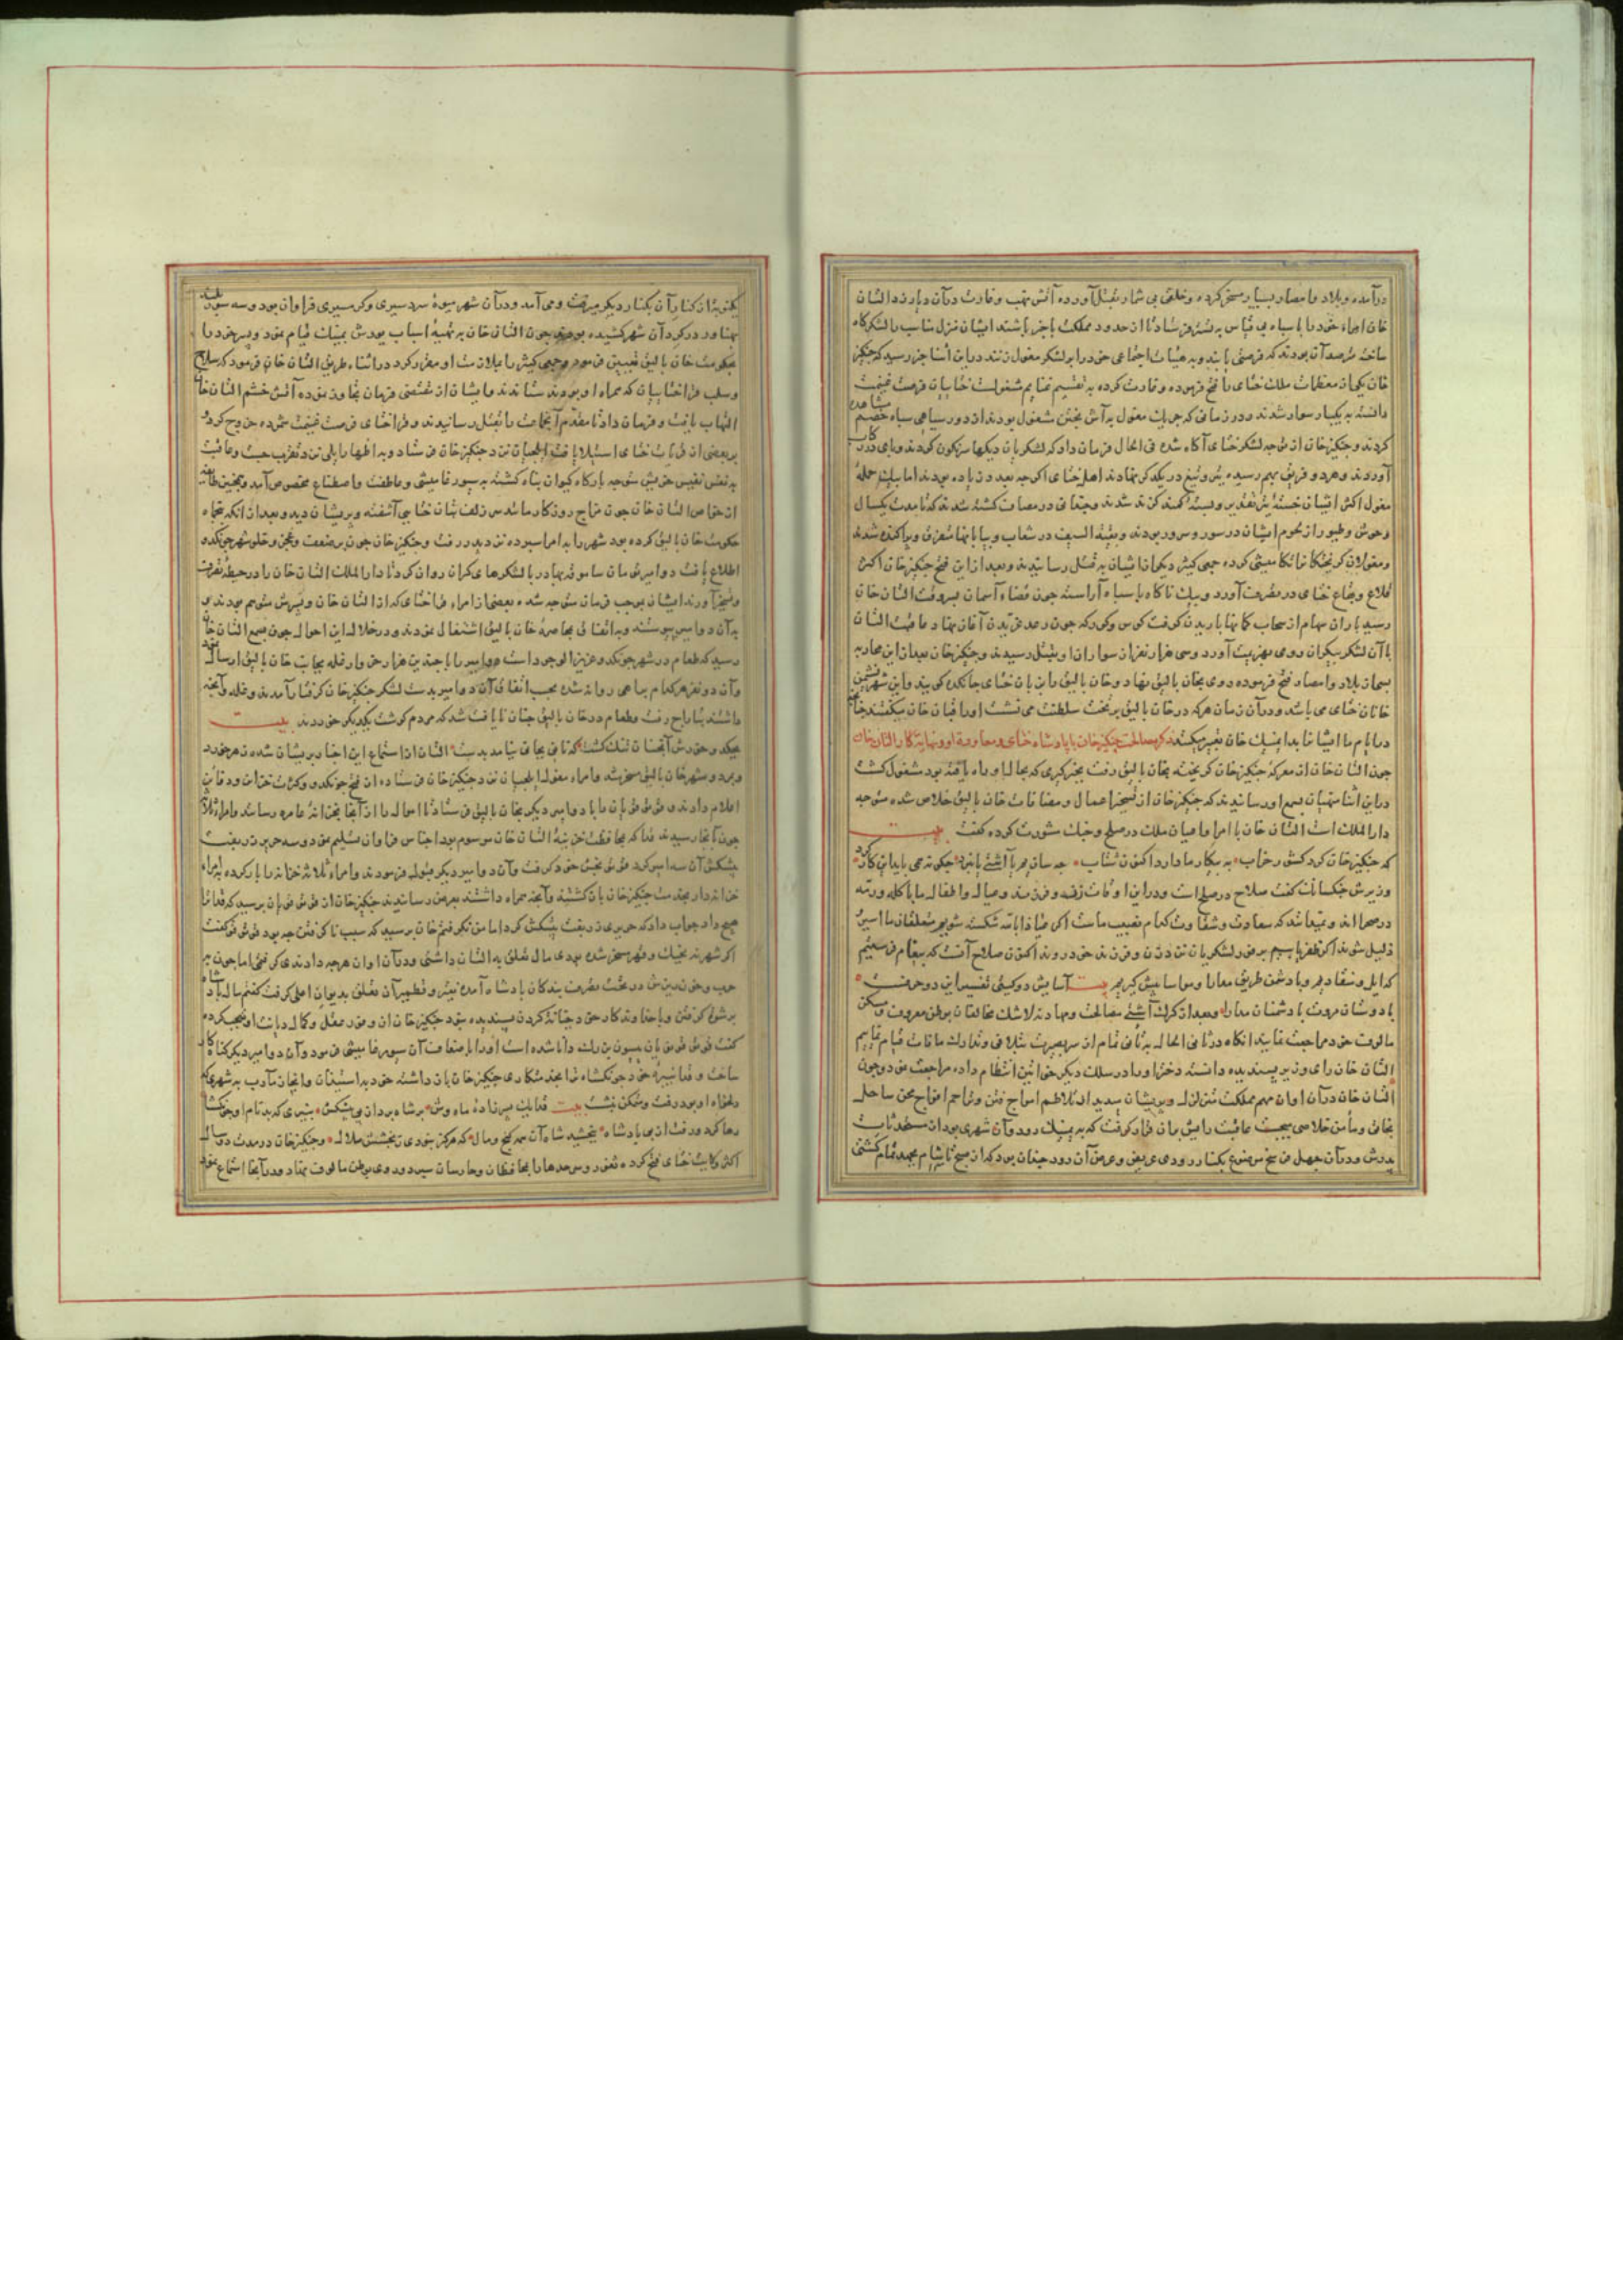 درآمده و بلاد و امصار بسیار مسخر کرده و خلقی بی شمار بقتل آورده آتش نهب و غارت در آن دیار زد التان
خان امراء خود را با سپاه بی قیاس فرستاد تا از حدود مملکت باخبر باشند ایشان منزل مناسب با لشکرگاه
ساخته مترصد آن بودند که فرصتی یابند و به هیئات اجتماعی خود را بر لشکر مغول زنند درین اثنا خبر رسید که چنکیز
خان یکی از معظمات ملک ختای را فتح فرموده و غارت کرده به تقسیم غنایم مشغولست ختاییان فرصت غنیمت
دانسته به یکبار سوار شدند و در زمانی که جریک مغول به آش پختن مشغول بودند از دور سیاهی سپاه خصم مشاهده
کردند و جنکیزخان از توجه لشکر ختای آگاه شده فی الحال فرمان داد که لشکریان دیکها سرنگون کردند و پای در رکاب
آوردند و هر دو فریق بهم رسیده تیر و تیغ در یکدگر نهادند اهل ختای اگرچه بعدد زیاده بودند اما
مغول اکثر ایشان خسته تیر تقدیر و بسته کمند کزند شدند و چندانی در مصاف کشته شدند که تا مدت یکسال
وحوش و طیور از لحوم ایشان در سور و سرور بودند و بقیة السیف در شعاب و بیابانها متفرق و پراکنده شدند
و مغولان کریختکانرا تکامیشی کرده جمعی کثیر دیگر از ایشان به قتل رسانیدند و بعد از این فتح جنکیزخان اکثر
قلاع و بقاع ختای در تصرف آورد و بیک ناکاه با سپاه آراسته چون قضاء آسمان بسر وقت التان خان
رسید باران سهام از سحاب کمانها باریدن کرفت کوس و کورکه چون رعد غریدن آغاز نهاد عاقبت التان
با آن لشکر بیکران روی بهزیمت آورد و سی هزار نفر از سواران او بقتل رسیدند و جنکیزخان بعد از این محاربه
بسیار بلاد و امصار فتح فرموده روی بخان بالیق نهاد و خان بالیق را بزبان ختای جونکدو کویند و این شهر نشیمن
خانان ختای می باشد و در آن زمان هرکه در خان بالیق بر تخت سلطنت می نشست او را خان میگفتند چنانچه
درین ایام ما ایشانرا بداینک خان تعبیر میکنند ذکر مصالحت جنکیزخان با پادشاه ختای و معاودت او و نهایت کار التان خان
چون التان خان از معرکه جنکیزخان کریخته بخان بالیق رفت بجبر کسری که بحال او راه یافته بود مشغول کشت
درین اثنا منهیان بسمع او رسانیدند که جنکیزخان از تسخیر اعمال و مضافات خان بالیق خلاص شده متوجه
دارالملک است التان خان با امرا و اعیان ملک در صلح و جنک مشورت کرده کفت بیت
که جنکیزخان کرد کشور خراب به پیکار ما دارد اکنون شتاب چه سازیم با آشتی یا نبرد چکونه می باید این کار کرد
وزیرش جنکسانک کفت صلاح در صلح است و درین اوقات زن و فرزند و عیال و اطفال ما با کله و رمه
در صحرا اند و نمیدانند که سعادت و شقاوت کدام نصیب ماست اگر عیاذا بالله شکسته شویم متعلقان ما اسیر
ذلیل شوند اگر ظفر یابیم برین لشکریان نزد زن و فرزند خود روند اکنون صلاح آنست که پیغام فرستیم
که ایل و منقاد یم و با دشمن طریق مدارا و مواسا پیش کیریم بیت آسایش دو کیتی تفسیر این دو حرفست
با دوستان مروت با دشمنان مدارا و بعد از کرک آشتی مصالحت و مهادنه لاشک مخالفان بوطن معروف و مسکن
مألوف خود مراجعت نمایند آنکاه در ثانی الحال به تأنی تمام از سر بصیرت بتلافی و تدارک مافات قیام نماییم
التان خان رای وزیر پسندیده دانسته دختر او را در سلک دیگر خواتین انتظام داده مراجعت نمود و چون
التان خان در آن اوان مهم مملکت متزلزل و پریشان بدید از تلاطم امواج فتن و تراحم افواج محن ساحل
نجاتی و مأمن خلاصی میجست عاقبت رایش بر آن قرار گرفت که به نمینک رود و آن شهری بود از مستحدثات
پدرش و در آن چهل فرسخ موضوع بکنار رودی عریض و عرض آن رود چنان بود که از صبح تا شام بجهد تمام کشتی
یکنوبت از کنار آن بکنار دیگر میرفت و می آمد و در آن شهر میوهٔ سردسیری و کرمسیری فراوان بود و سه سور بلند
پهناور در کرد آن شهر کشیده بودند چون التان خان به تهیهٔ اسباب یورش بمینک قیام نمود و پسر خود را
بحکومت خان بالیق تعیین فرمود و جمعی کثیر را بملازمت او مقرر کرد در اثناء طریق التان خان فرمود که سلاح
و سلب قراختاییان که همراه او بودند ستاندند و ایشان از مقتضی فرمان تجاوز نموده آتش خشم التان خان
التهاب یافت و فرمان داد تا مقدم آنجماعت را بقتل رسانیدند و قراختای فرصت غنیمت شمرده خروج کردند
بر بعضی از ولایت ختای استیلا یافته ایلچیان نزد جنکیزخان فرستاد و به اظهار ایلی نزد تقرب جست و عاقبت
به نفس نفیس خویش متوجه بارگاه کیوان پناه کشته به سیورغامیشی و عاطفت و اصطناع مخصوص آمد و همچنین طایفه
از خواص التان خان چون مزاج روزکار مانند سر زلف بتان ختایی آشفته و پریشان دید و بعد از آنکه پنجاه
حکومت خان بالیق کرده بود شهر را به امرا سپرده نزد پدر رفت و جنکیزخان چون بر ضعف و عجز و خلو شهر جونکدو
اطلاع یافت دو امیرش سامان سامو ق بهادر با لشکرهای کران روان کرد تا دارالملک التان خان را در حیطهٔ تصرف
و تسخیر آورند ایشان بموجب فرمان متوجه شده بعضی از امراء قراختای که از التان خان و پسرش متوهم بودند
به آن دو امیر پیوستند و به اتفاق بمحاصرهٔ خان بالیق اشتغال نمودند و در خلال این احوال چون بسمع التان خان
رسید که طعام در شهر جونکدو عزیز الوجود است دو امیر را با چندین هزار خروار غله بجانب خان بالیق ارسال نمود
و آن دو نفر هر کدام براهی روانه شده بحسب اتفاق آن دو امیر بدست لشکر جنکیزخان کرفتار آمدند و غله و آنچه
داشتند بتاراج رفت و طعام در خان بالیق چنان نایافت شد که مردم کوشت یکدیگر خوردند بیت
میکدو خورش آنچنان تنک کشت که نان بجانی نیامد بدست التان از استماع این اخبار پریشان شده زهر خورد
و بمرد و شهر خان بالیق مسخر شد و امراء مغول ایلچیان نزد جنکیزخان فرستاده از فتح جونکدو و کثرت خزاین و دفاین
اعلام دادند قوتوقو نویان را با دو امیر دیگر بخان بالیق فرستاد تا اموال را از آنجا بخزانهٔ عامره رسانند و امراء ثلاثه
چون آنجا رسیدند قدا که بمحافظت خزینهٔ التان خان موسوم بود اجناس فراوان تسلیم نمود و سه حریر زربفت
پیشکش آن سه امیر کرد قوتوقو بخش خود نکرفت و آن دو امیر دیگر قبول فرمودند و امراء ثلاثه خزانه را بار کرده
خزانه دار بخدمت جنکیزخان باز کشتند و آنچه همراه داشتند بعرض رسانیدند جنکیزخان از قوتوقو نویان پرسید که قدا ترا
هیچ داد جواب داد که حریری زربفت پیشکش کرد اما من نگرفتم خان پرسید که سبب ناگرفتن چه بود قوتوقو کفت
اگر شهر نه بجنک و قهر مسخر شده بودی مال تعلق به التان داشتی و در آن اوان هرچه دادندی گرفتمی اما چون
حرب و خون ریزش در تحت تصرف بندکان پادشاه آمده نقیر و قطمیر آن تعلق بدیوان اعلی کرفت کفتم مال پادشاه
برشوت کرفتن و با خداوندکار خود خیانت کردن پسندیده نبود جنکیزخان از وفور عقل و کمال دیانت او تعجب کرده
کفت قوتوقو نویان بیسون بزرک دانا شده است او را باضعاف آن سیورغامیشی فرمود و آن دو امیر دیگر کناه کار
ساخت و قدا نبیرهٔ خود جونکشاه را بخدمتکاری جنکیزخان باز داشته خود بداستیذان و انجاز مآرب به شهری که
دلخواه او بود رفت و متمکن نشست بیت قدا یک پسرزادهٔ ماه وش بر شاه بردا ز پی پیشکش نبیری که بد نام او جونکشا
رها کرد و رفت از بر پادشاه ببخشید شاه آن همه کنج و مال که هرکز نبودی ز بخشش ملال و جنکیزخان در مدت دو سال
اکثر ولایت ختای فتح کرده ثغور و سرحدها را بمحافظان و حارسان سپرد و روی بوطن مالوف نهاد و در آنجا استماع نمود